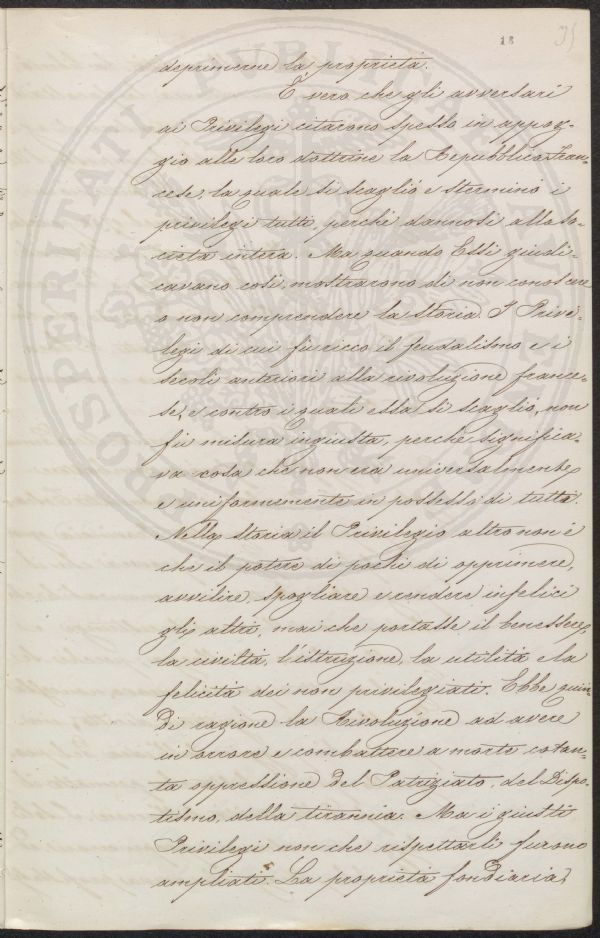 18
deprimerne la proprietà.
È vero che gli avversari
ai Privilegi citarono spesso in appog-
gio alle loro dottrine la Repubblica Fran-
cese, la quale si scagliò e sterminò i
privilegi tutti, perchè dannosi alla so-
cietà intera. Ma quando Essi giudi-
cavano così, mostrarono di non conoscere
o non comprendere la storia. I Privi-
legi di cui fù ricco il feudalismo e i
secoli anteriori alla rivoluzione france-
se, e contro i quali essa si scagliò, non
fù misura ingiusta, perchè significa-
va cosa che non era universalmente
e uniformemente in possesso di tutti.
Nella storia il Privilegio altro non è
che il potere di pochi di opprimere,
avvilire, spogliare e rendere infelici
gli altri, mai che portasse il benessere,
la civiltà, l'istruzione, la utilità e la
felicità dei non privilegiati. Ebbe quin-
di ragione la Rivoluzione ad avere
in orrore e combattere a morte cotan-
ta oppressione del Patriziato, del Dispo-
tismo, della tirannia. Ma i giusti
Privilegi non che rispettarli furono
ampliati. La proprietà fondiaria,
PROSPERITATI PUBLICAE AUGENDAE